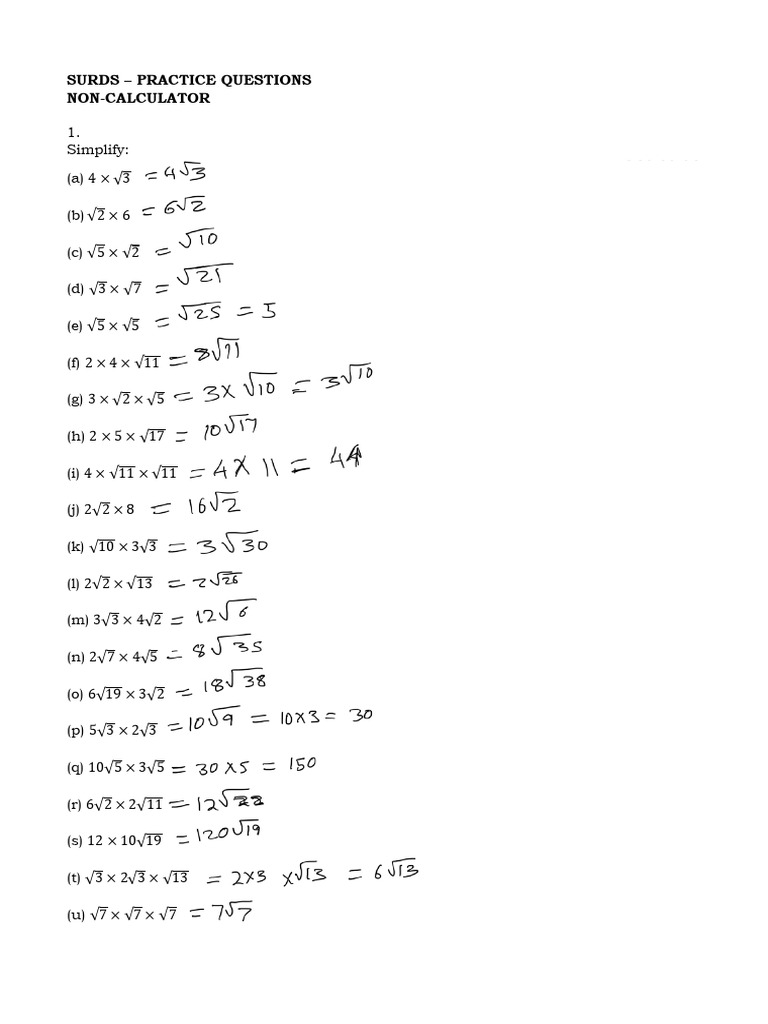 SURDS – PRACTICE QUESTIONS
NON-CALCULATOR
1.
Simplify:
(a) 4 × √3 = 4√3
(b) √2 × 6 = 6√2
(c) √5 × √2 = √10
(d) √3 × √7 = √21
(e) √5 × √5 = √25 = 5
(f) 2 × 4 × √11 = 8√11
(g) 3 × √2 × √5 = 3 × √10 = 3√10
(h) 2 × 5 × √17 = 10√17
(i) 4 × √11 × √11 = 4 × 11 = 44
(j) 2√2 × 8 = 16√2
(k) √10 × 3√3 = 3√30
(l) 2√2 × √13 = 2√26
(m) 3√3 × 4√2 = 12√6
(n) 2√7 × 4√5 = 8√35
(o) 6√19 × 3√2 = 18√38
(p) 5√3 × 2√3 = 10√9 = 10×3 = 30
(q) 10√5 × 3√5 = 30 × 5 = 150
(r) 6√2 × 2√11 = 12√22
(s) 12 × 10√19 = 120√19
(t) √3 × 2√3 × √13 = 2×3 × √13 = 6√13
(u) √7 × √7 × √7 = 7√7